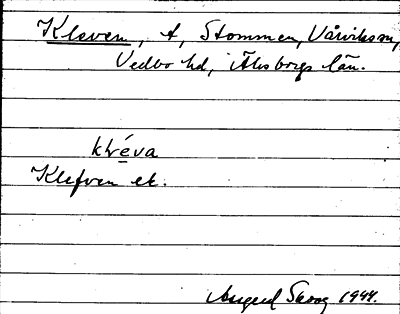 Kleven, t, Stommen, Vårviks sn,
Vedbo hd, Älvsborgs län.
kléva
Klefven ek.
Skoog 1944.